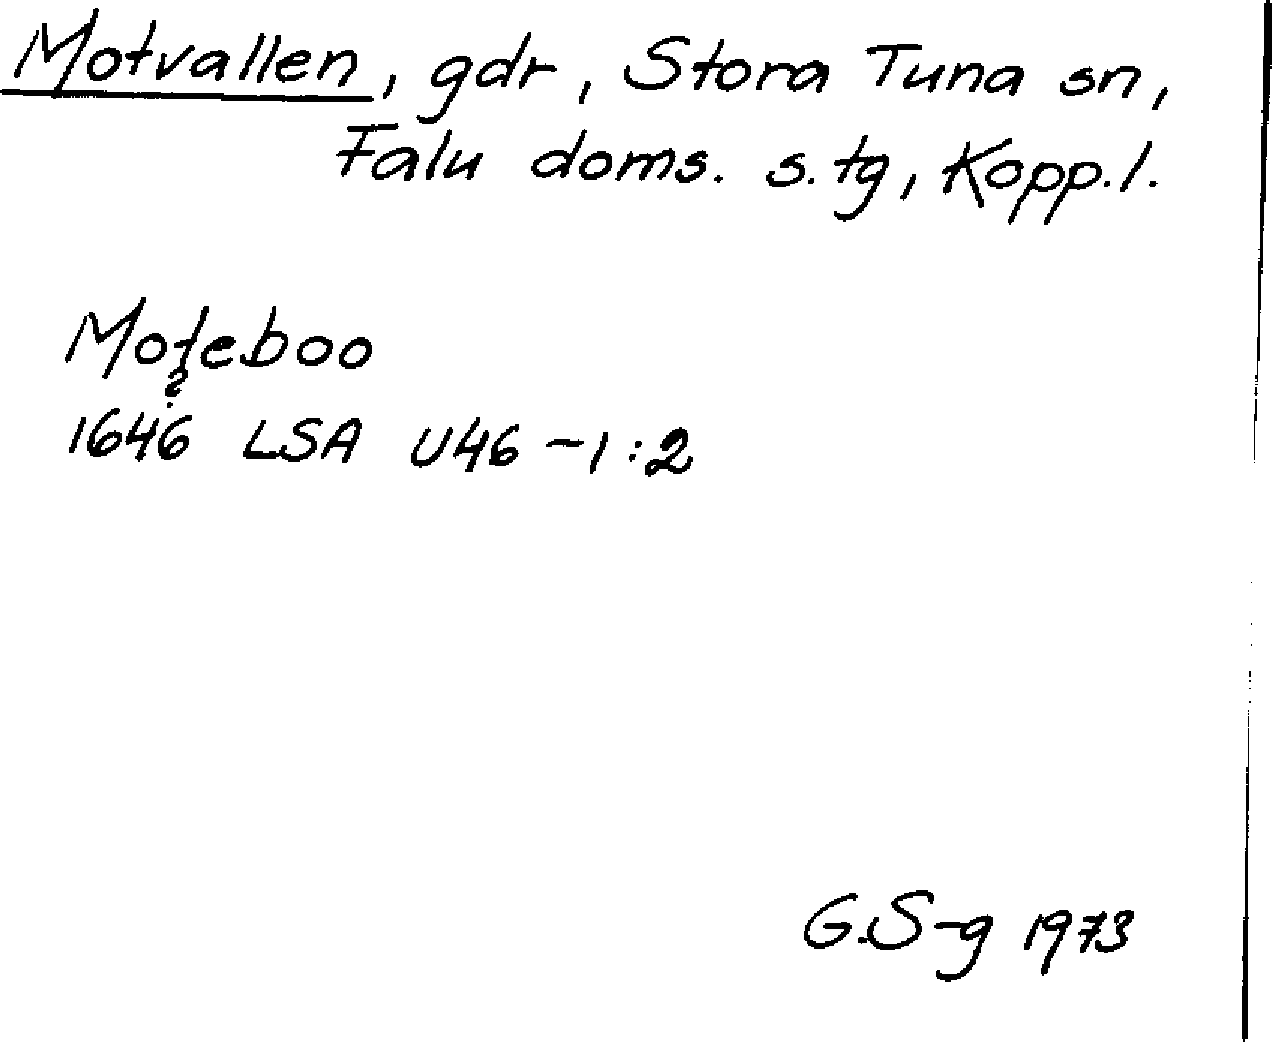 Motvallen, gdr, Stora Tuna sn,
Falu doms. s. tg, Kopp.l.
Moteboo
?
1646 LSA U46-1:2
G.S-g 1973